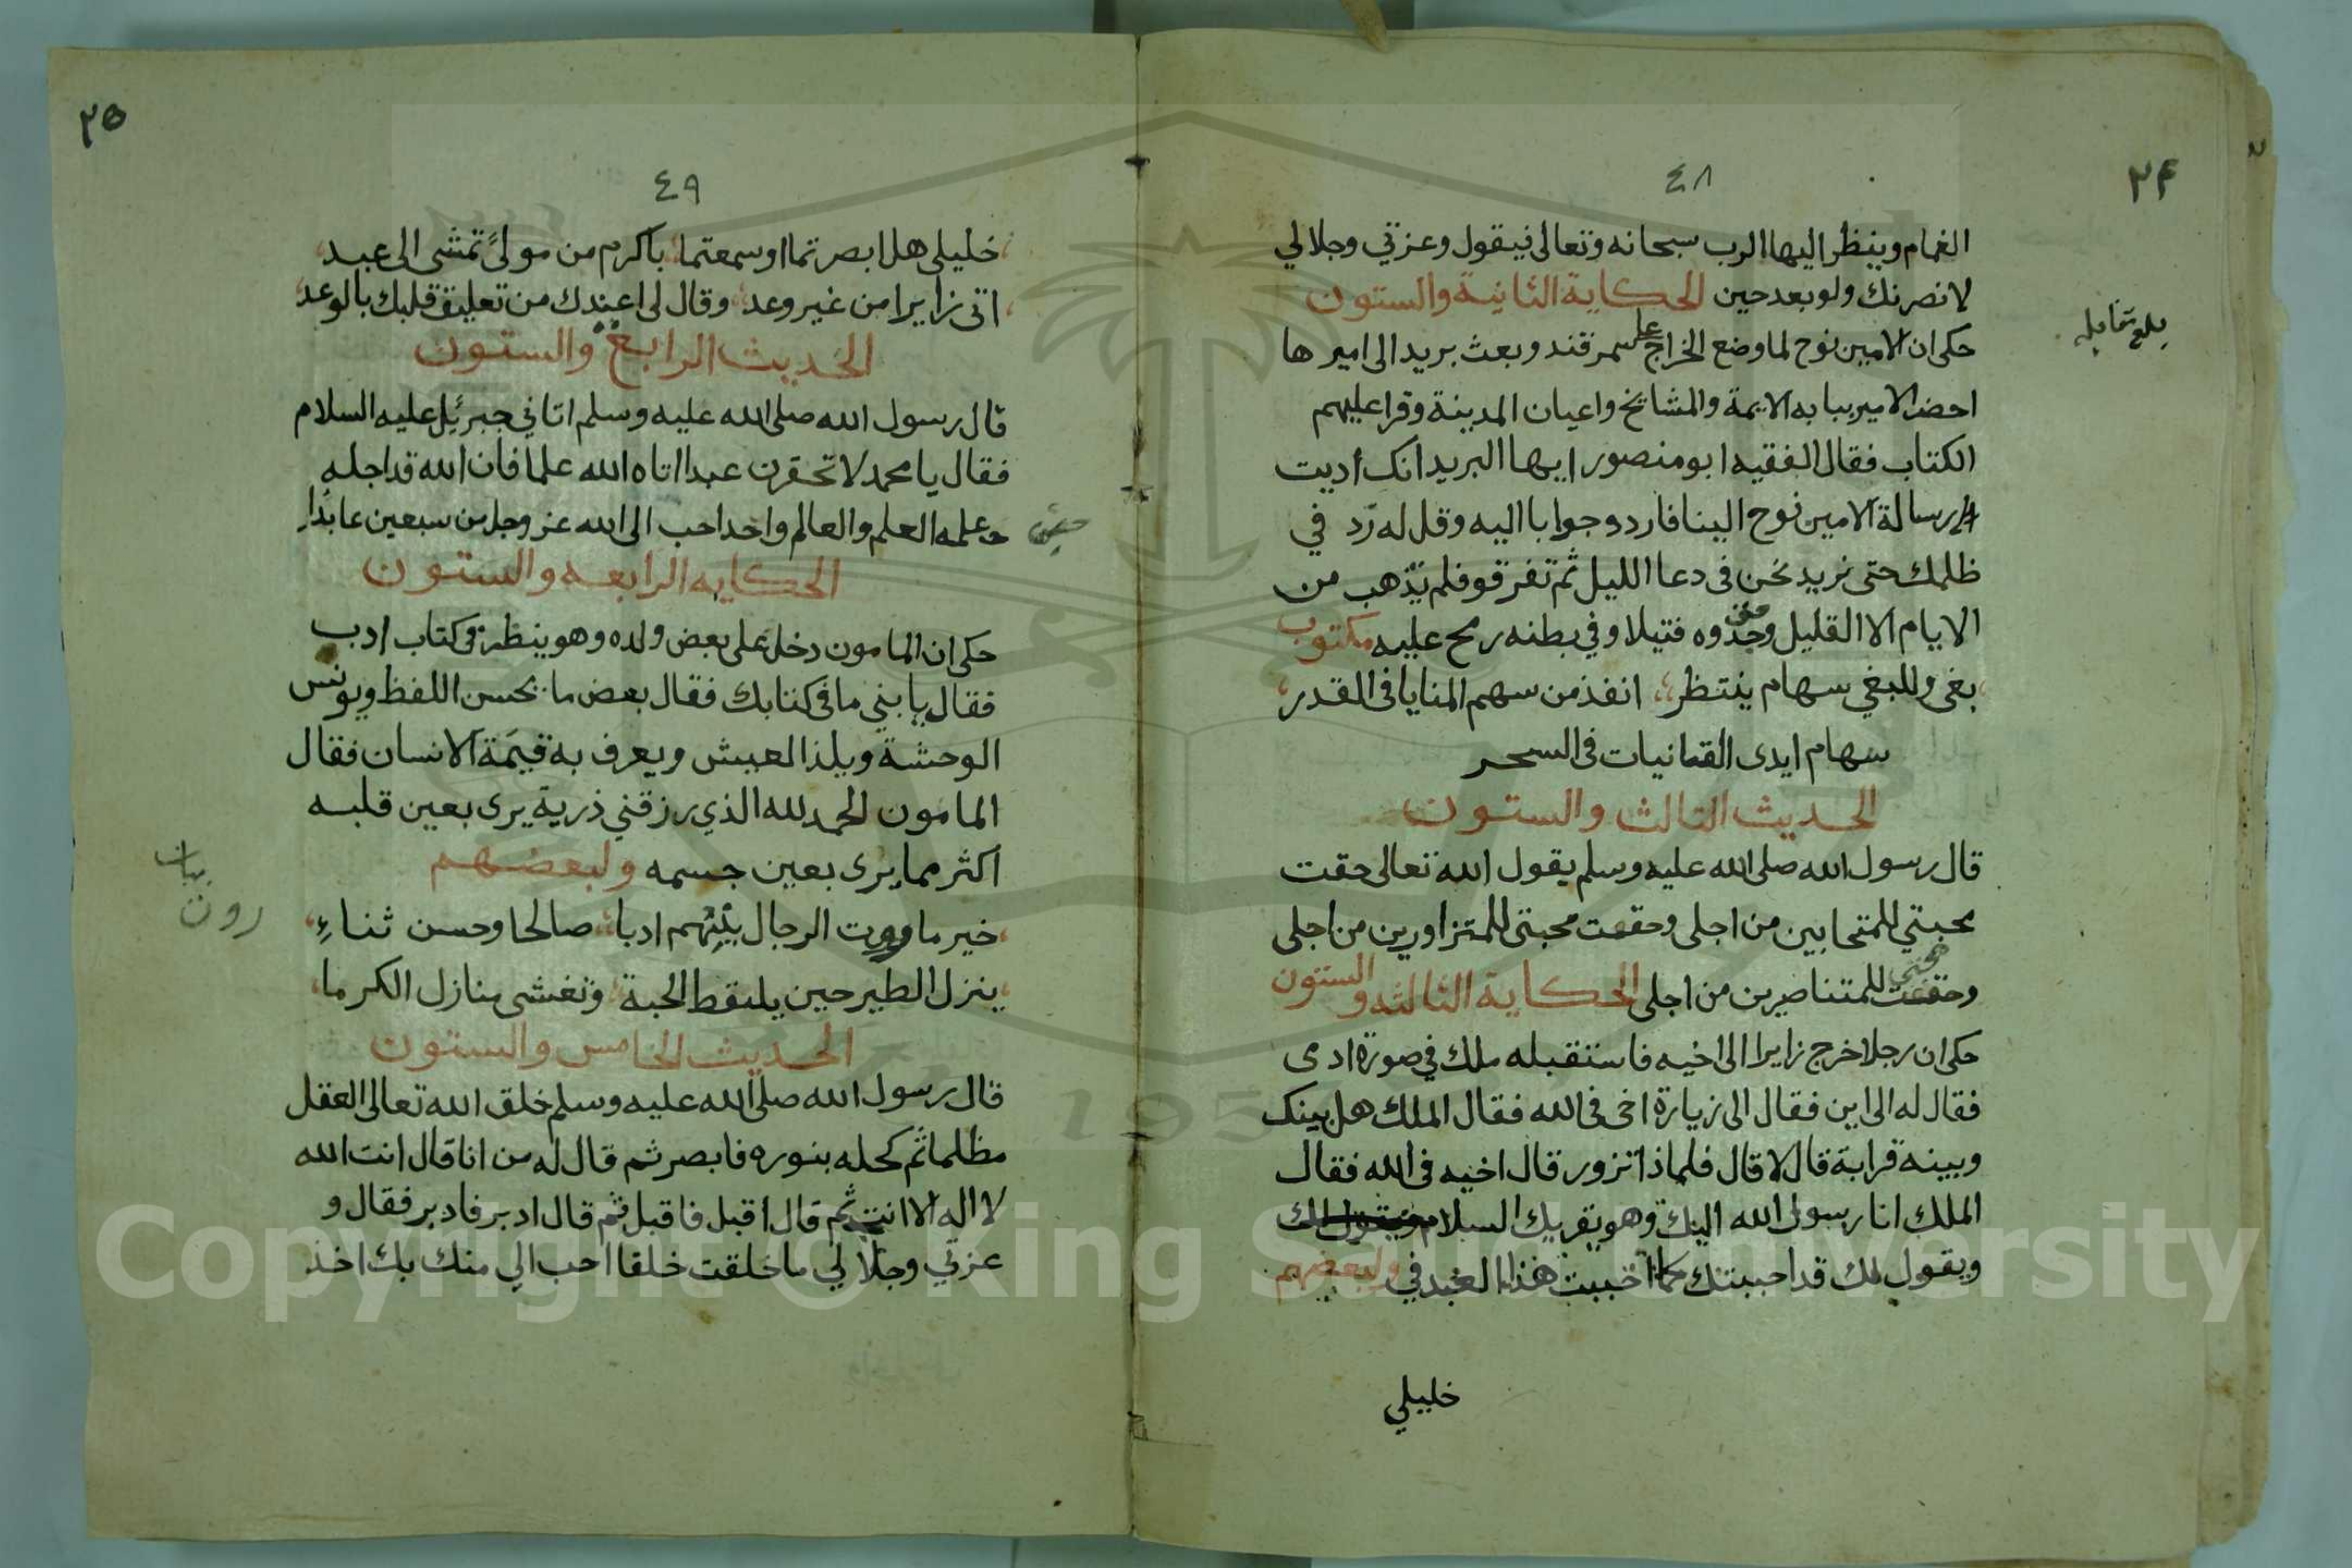 ٢٤
٤٨
الغمام وينظر اليها الرب سبحانه وتعالى فيقول وعزتي وجلالي
لانصرنك ولو بعد حين الحكاية الثانية والستون
حكى ان الامين نوح لما وضع الخراج على سمرقند وبعث بريد الى اميرها
احضر الامير ببابه الايمة والمشايخ واعيان المدينة وقرا عليهم
الكتاب فقال الفقيه ابو منصور ايها البريد انك اديت
رسالة الامين نوح الينا فاردد جوابا اليه وقل له زد في
ظلمك حتى نزيد نحن في دعا الليل ثم تفرقو فلم تذهب من
الايام الا القليل وجدوه قتيلا وفي بطنه رمح عليه مكتوب
بغى وللبغي سهام ينتظر انفذ من سهم المنايا في القدر
سهام ايدى القانيات في السحر
الحديث الثالث والستون
قال رسول الله صلى الله عليه وسلم يقول الله تعالى حقت
محبتي للمتحابين من اجلى وحققت محبتى للمتزاورين من اجلى
وحققت محبتي للمتناصرين من اجلى الحكاية الثالثه والستون
حكى ان رجلا خرج زايرا الى اخيه فاستقبله ملك في صورة ادمى
فقال له الى اين فقال الى زيارة اخى فى الله فقال الملك هل بينك
وبينه قرابة قال لا قال فلماذا تزور قال اخيه فى الله فقال
الملك انا رسول الله اليك وهو يقريك السلام
ويقول لك قد احببتك كما احببت هذا العبد في ولبعضهم
خليلي
بلغ مقابله
٢٥
٤٩
خليلى هل ابصرتما او سمعتما باكرم من مولىً تمشى الى عبد
اتى زايرا من غير وعد وقال لى اعندك من تعليق قلبك بالوعد
الحديث الرابع والستون
قال رسول الله صلى الله عليه وسلم اتاني جبرئيل عليه السلام
فقال يا محمد لا تحقرن عبدا اتاه الله علما فان الله قد اجله
علمه العلم والعالم واحد احب الى الله عز وجل من سبعين عابدا
الحكايه الرابعه والستون
حكى ان المامون دخل على بعض ولده وهو ينظر في كتاب ادب
فقال يا بني ما فى كتابك فقال بعض ما يحسن اللفظ ويونس
الوحشة ويلذ العيش ويعرف به قيمة الانسان فقال
المامون الحمد لله الذي رزقني ذرية يرى بعين قلبه
اكثر مما يرى بعين جسمه ولبعضهم
خير ما ورت الرجال بينهم ادبا صالحا وحسن ثناءِ
ينزل الطير حين يلتقط الحبة وتغشى منازل الكرما
الحديث الخامس والستون
قال رسول الله صلى الله عليه وسلم خلق الله تعالى العقل
مظلما ثم كحله بنوره فابصر ثم قال له من انا قال انت الله
لا اله الا انت ثم قال اقبل فاقبل ثم قال ادبر فادبر فقال و
عزتي وجلالي ما خلقت خلقا احب الي منك بك اخذ
Copyright © King Saud University